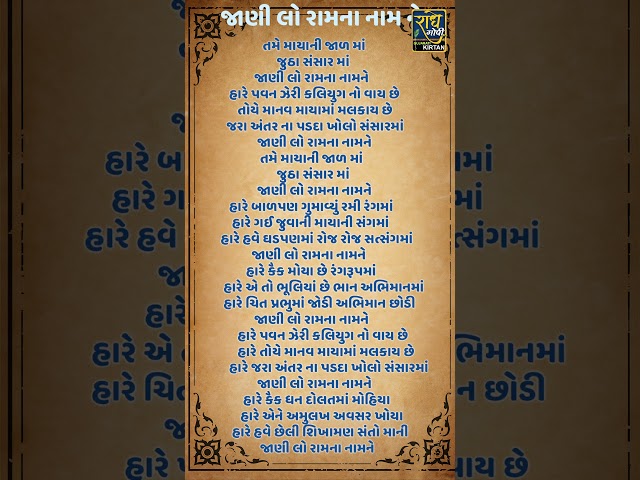 જાણી લો રામના નામ ને
રાધે
ગોપી
GUJARATI
KIRTAN
તમે માયાની જાળ માં
જુઠા સંસાર માં
જાણી લો રામના નામને
હારે પવન ઝેરી કલિયુગ નો વાય છે
તોયે માનવ માયામાં મલકાય છે
જરા અંતર ના પડદા ખોલો સંસારમાં
જાણી લો રામના નામને
તમે માયાની જાળ માં
જુઠા સંસાર માં
જાણી લો રામના નામને
હારે બાળપણ ગુમાવ્યું રમી રંગમાં
હારે ગઈ જુવાની માયાની સંગમાં
હારે હવે ઘડપણમાં રોજ રોજ સત્સંગમાં
જાણી લો રામના નામને
હારે કૈક મોયા છે રંગરૂપમાં
હારે એ તો ભૂલિયાં છે ભાન અભિમાનમાં
હારે ચિત પ્રભુમાં જોડી અભિમાન છોડી
જાણી લો રામના નામને
હારે પવન ઝેરી કલિયુગ નો વાય છે
હારે તોયે માનવ માયામાં મલકાય છે
હારે જરા અંતર ના પડદા ખોલો સંસારમાં
જાણી લો રામના નામને
હારે કૈક ધન દોલતમાં મોહિયા
હારે એને અમુલખ અવસર ખોયા
હારે હવે છેલી શિખામણ સંતો માની
જાણી લો રામના નામને